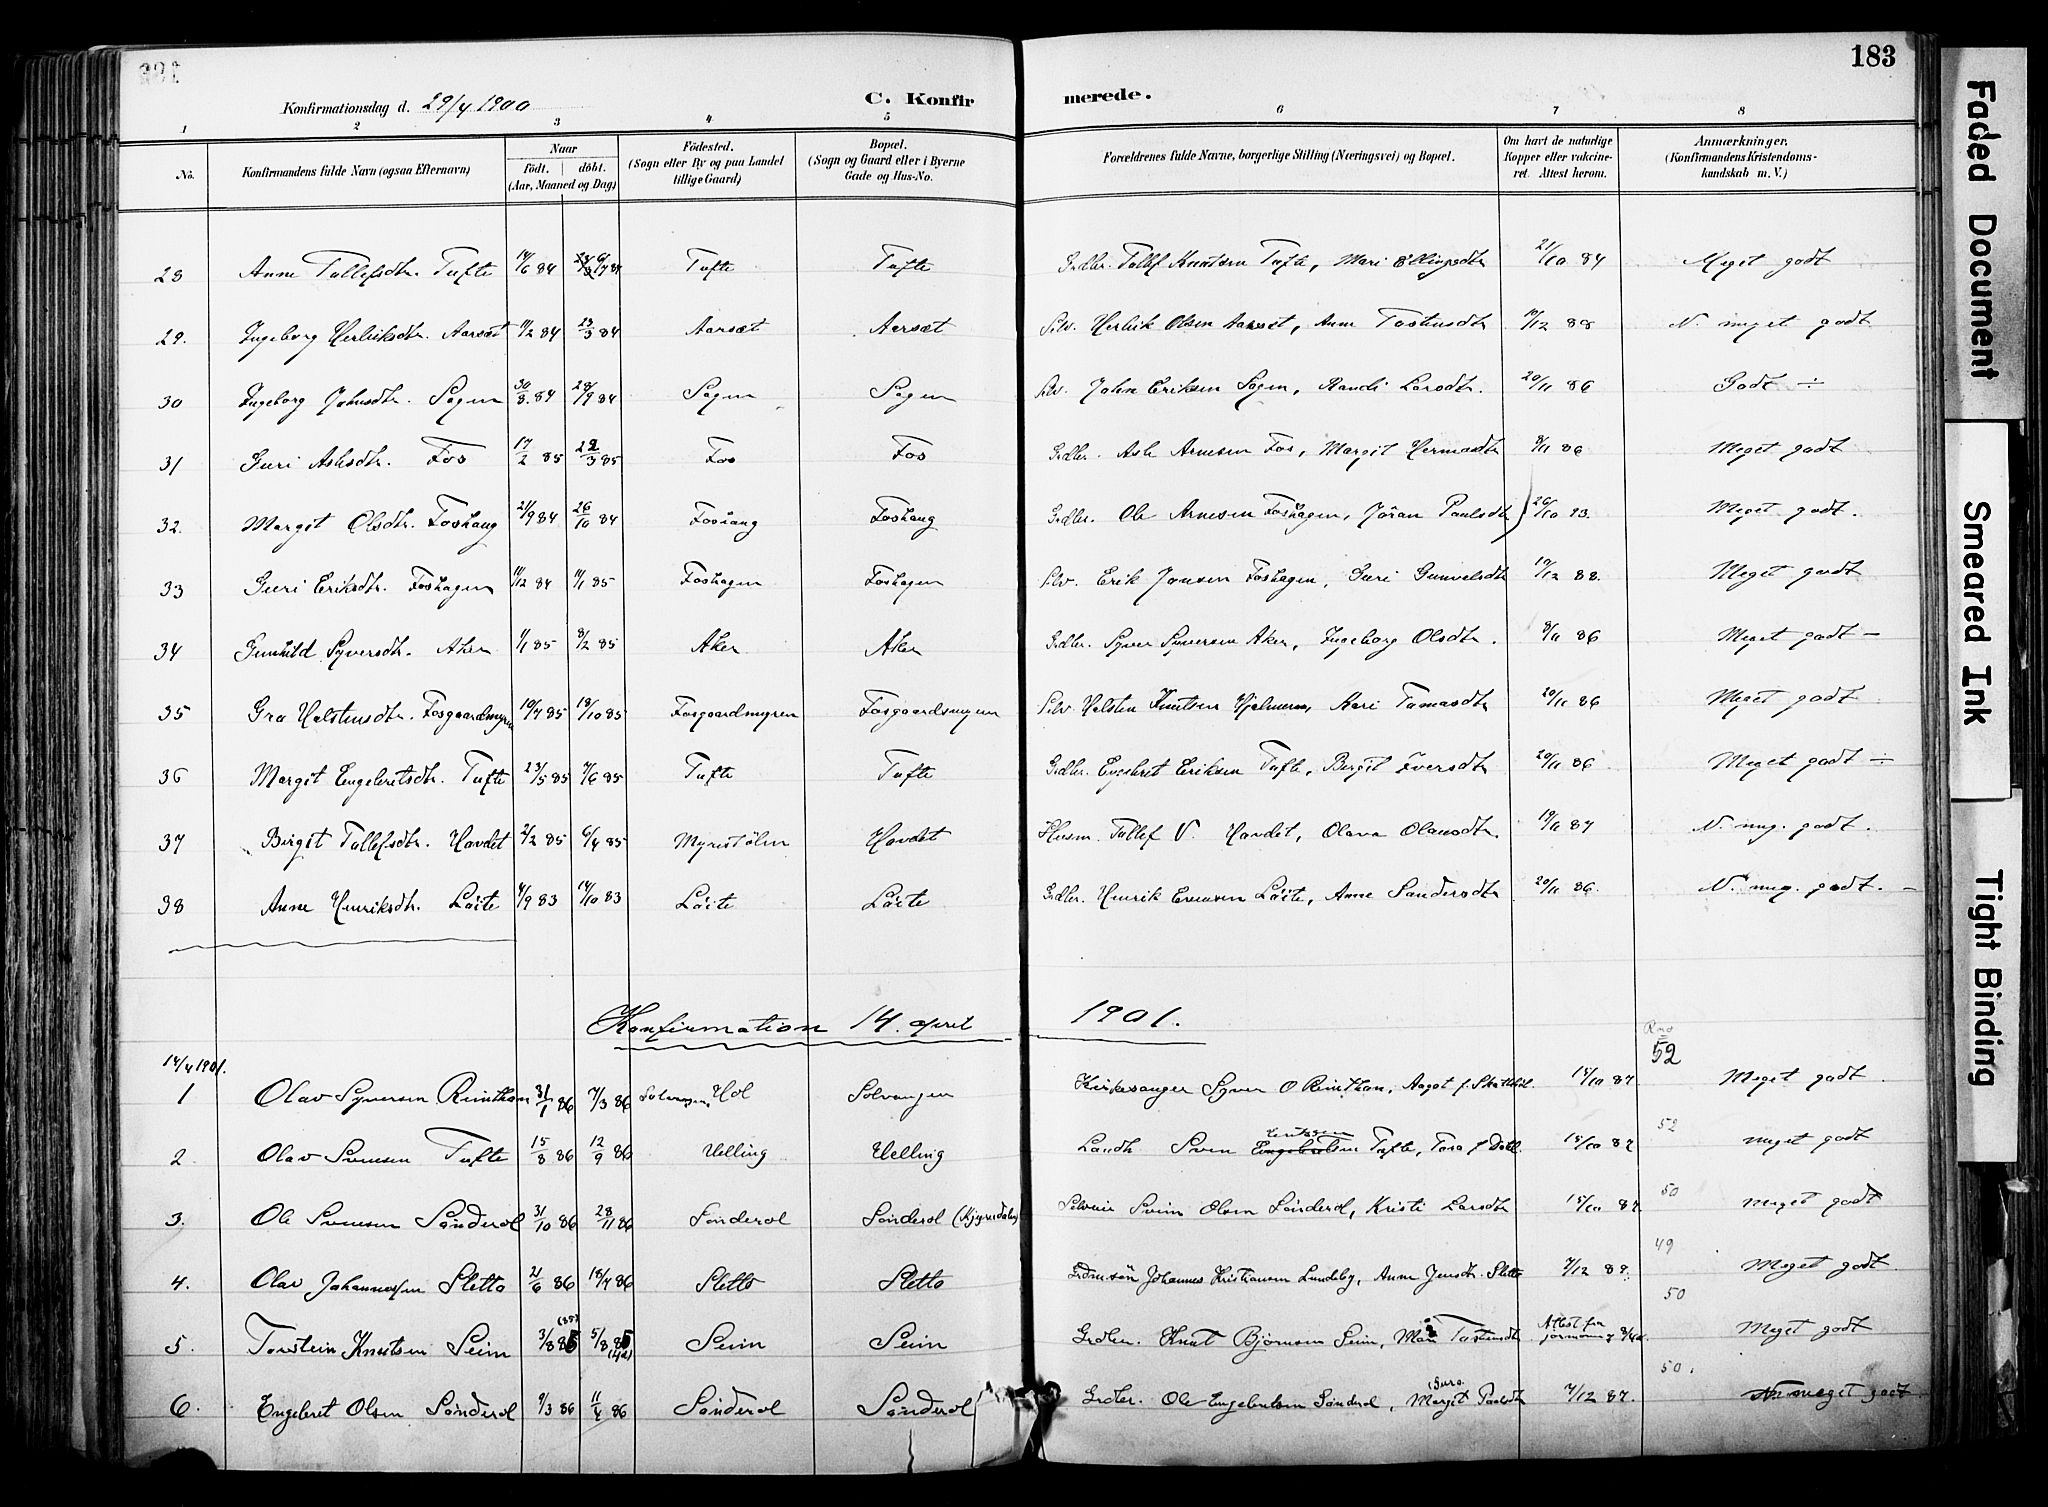 183
Konfirmationsdag d. 29/4 1900
C. Konfirmerede.
1 2 3 4 5 6 7 8
No. Konfirmandens fulde Navn (ogsaa Efternavn) Naar født. døbt. (Aar, Maaned og Dag) Fødested. (Sogn eller By og paa Landet tillige Gaard) Bopæl. (Sogn og Gaard eller i Byerne Gade og Hus-No. Forældrenes fulde Navne, borgerlige Stilling (Næringsvei) og Bopæl. Om havt de naturlige Kopper eller vakcineret. Attest herom. Anmærkninger. (Konfirmandens Kristendomskundskab m. V.)
28 Anne Tollefsdtr. Tufte 14/6 84 Tufte Tufte Grdbr. Tollef Knutsen Tufte, Mari Ellingsdtr 21/10 84 Meget godt
29. Ingeborg Herbiksdtr. Aarset 11/2 84 23/3 84 Aarsæt Aarsæt Selv. Herbik Olsen Aarset, Anne Tostensdtr 19/12 88 N. meget godt
30 Ingeborg Johnsdtr. Sogn 30/8 84 28/9 84 Sogn Sogn Selv. John Eriksen Sogn, Randi Larsdtr. 20/11 86 Godt ÷
31 Guri Aslesdtr. Fos 17/2 85 22/3 85 Fos Fos Grdbr. Asle Arnesen Fos, Margit Hermasdtr 8/11 86 Meget godt
32. Margit Olsdtr. Foshaug 21/9 84 26/10 84 Foshaug Foshaug Grdbr. Ole Arnesen Foshagen, Jöran Paulsdtr 26/10 93. Meget godt.
33 Guri Eriksdtr. Foshagen 11/12 84 11/1 85 Foshagen Foshagen Selv. Erik Jonsen Foshagen, Guri Gunvalsdtr 19/12 88. Meget godt
34 Gunhild Syversdtr. Aker 1/1 85 8/2 85 Aker Aker Grdbr. Syver Syversen Aker, Ingeborg Olsdtr. 8/11 86 Meget godt -
35 Gro Halstensdtr. Fosgaardmyren 10/7 85 18/10 85 Fosgaardmyren Fosgaardsmyren Selv. Halsten Knutsen Hjelmen, Kari Tomasdtr 20/11 86 Meget godt
36 Margit Engebretsdtr. Tufte 23/5 85 7/6 85 Tufte Tufte Grdbr. Engebret Eriksen Tufte, Birgit Iversdtr 20/11 86 Meget godt ÷
37 Birgit Tollefsdtr. Havdet 2/2 85 6/4 85 Myrestølen Havdet Husm. Tollef V. Havdet, Olava Olausdtr. 19/11 87 N. meg. godt.
38 Anne Henriksdtr. Löite 4/9 83 14/10 83 Löite Löite Grdbr. Henrik Evensen Löite, Anne Sandersdtr 20/11 86. N. meg. godt. -
Konfirmation 14. april 1901.
14/4 1901.
1 Olav Syversen Rimthan 31/1 86 7/3 86 Solvangen, Hol Solvangen Kirkesanger Syver O Rimthan, Aagot f. Skottbøl 15/10 87 52 Meget godt.
2 Olav Svensen Tufte 15/8 86 12/9 86 Helling Helling Landh. Sven Eriksen Tufte, Tora f Dokk. 15/10 87 52 meget godt
3. Ole Svensen Sønderol 31/10 86 28/11 86 Sønderol Sønderol Selveier Svein Olsen Sønderol, Kristi Larsdtr 15/10 87. 50 meget godt
4. Olav Johannessen Sletto 21/6 86 18/7 86 Sletto Sletto Grdm. sön Johannes Kristiansen Lundeby, Anne Jensdtr. Sletto 7/12 89. 49 Meget godt.
5. Torstein Knutsen Seim 3/8 85 5/8 85 Seim Seim Grdbr. Knut Bjørnsen Seim, Mari Tostensdtr Attest fra 50 Meget godt
6. Engebret Olsen Sønderol 9/3 86 11/4 86 Sønderol Sønderol Grdbr. Ole Engebretsen Sønderol, Margit Paalsdtr 7/12 87. 50. meget godt.
Faded Document
Smeared Ink
Tight Binding